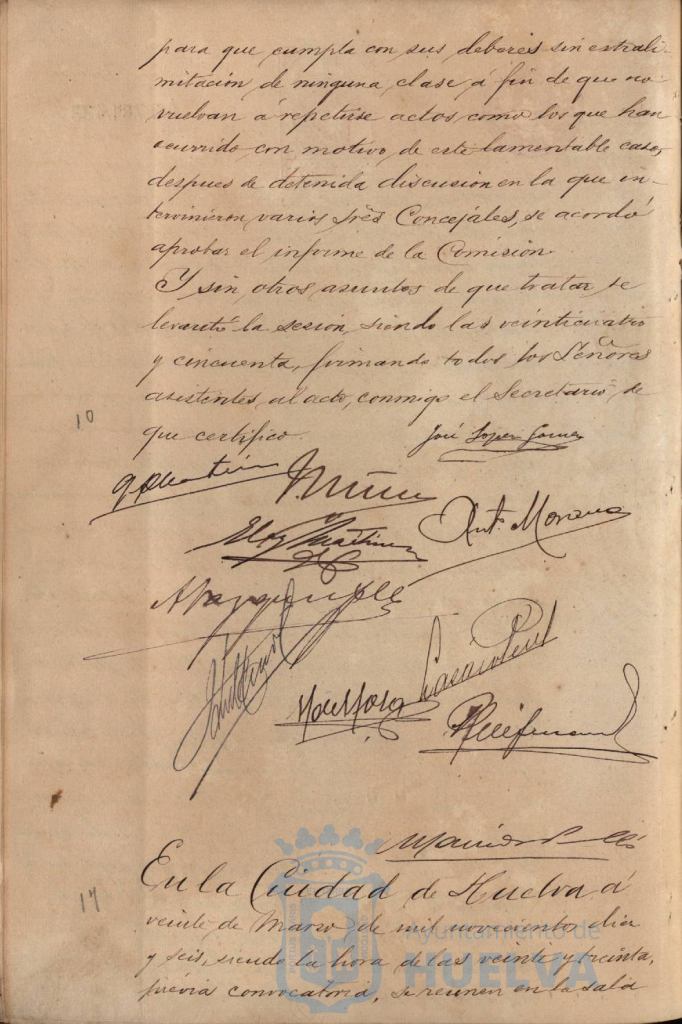 para que cumpla con sus deberes sin extrali-
mitación de ninguna clase á fin de que no
vuelvan á repetirse actos como los que han
ocurrido con motivo de este lamentable caso,
despues de detenida discusion en la que in-
tervinieron varios Sres Concejáles, se acordó
aprobar el informe de la Comisión.
Y sin otros asuntos de que tratar, se
levantó la sesión, siendo las veinticuatro
y cincuenta, firmando todos los Señores
asistentes al acto, conmigo el Secretario, de
que certifico.
José Lopez Gomez
10
Eloy Martinez
Antº Moreno
17
En la Ciudad de Huelva á
veinte de Marzo de mil novecientos diez
y seis, siendo la hora de las veinte y treinta,
prévia convocatoria, se reunen en la sala
Ayuntamiento de
HUELVA